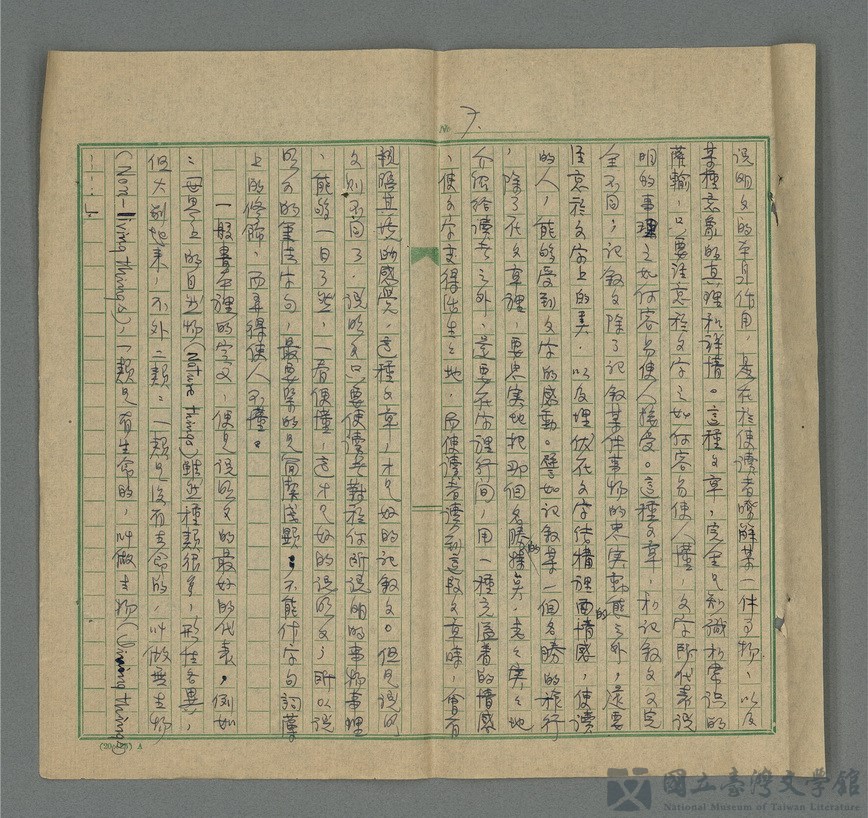 № 7.
說明文的本身作用，是在於使讀者瞭解某一件事物，以及
某種意象的真理和詳情。這種文章，完全是知識和常識的
灌輸，只要注意於文字之如何容易使人懂，文字所代表說
明的事理之如何容易使人接受。這種文章，和記敘文又完
全不同，記敘文除了記敘某件事物的忠実動態之外，還要
注意於文字上的美，以及埋伏在文字结構裡面的情感，使讀
的人，能夠受到文字的感動。譬如記敘某一個名勝的旅行
，除了在文章裡，要忠実地把那個名勝的真，老老実実地
介紹給讀者之外，還要在字裡行間，用一種充溢着的情感
，使文字变得活生生地，而使讀者讀到這段文章時，會有
親臨其境的感覺，這種文章，才是好的記敘文。但是說明
文則不同了，說明文只要使讀者對於你所說明的事物事理
，能够一目了然，一看便懂，這才是好的說明文；所以說
明文的筆法字句，最要緊的是簡潔淺顯，不能什字句詞藻
上的修飾，而弄得使人不懂。
一般書本裡的定义，便是說明文的最好的代表，例如
：「世界上的自然物(Native things)雖然種類很多，形性各異，
但大别地来，不外二類：一類是沒有生命的，叫做無生物
(Non-living things)，一類是有生命的，叫做生物(Living things)
……」。
(20×25) A
國立臺灣文學館
National Museum of Taiwan Literature